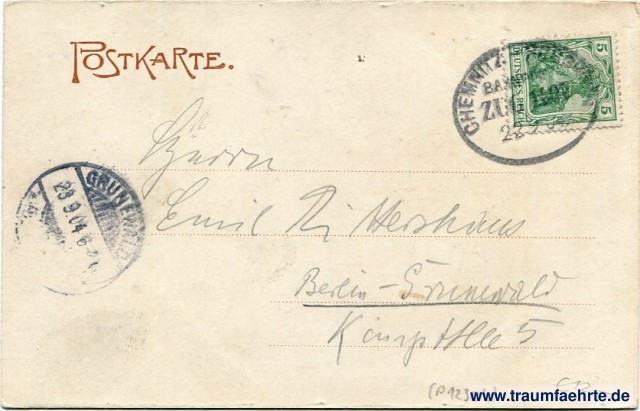 POSTKARTE.
CHEMNITZ
BAHN
ZUG
5
DEUTSCHES REICH
5
GRUNEWALD
23 9.04.6-7
Herrn
Emil Rittershaus
Berlin-Grunewald
5
www.traumfaehrte.de